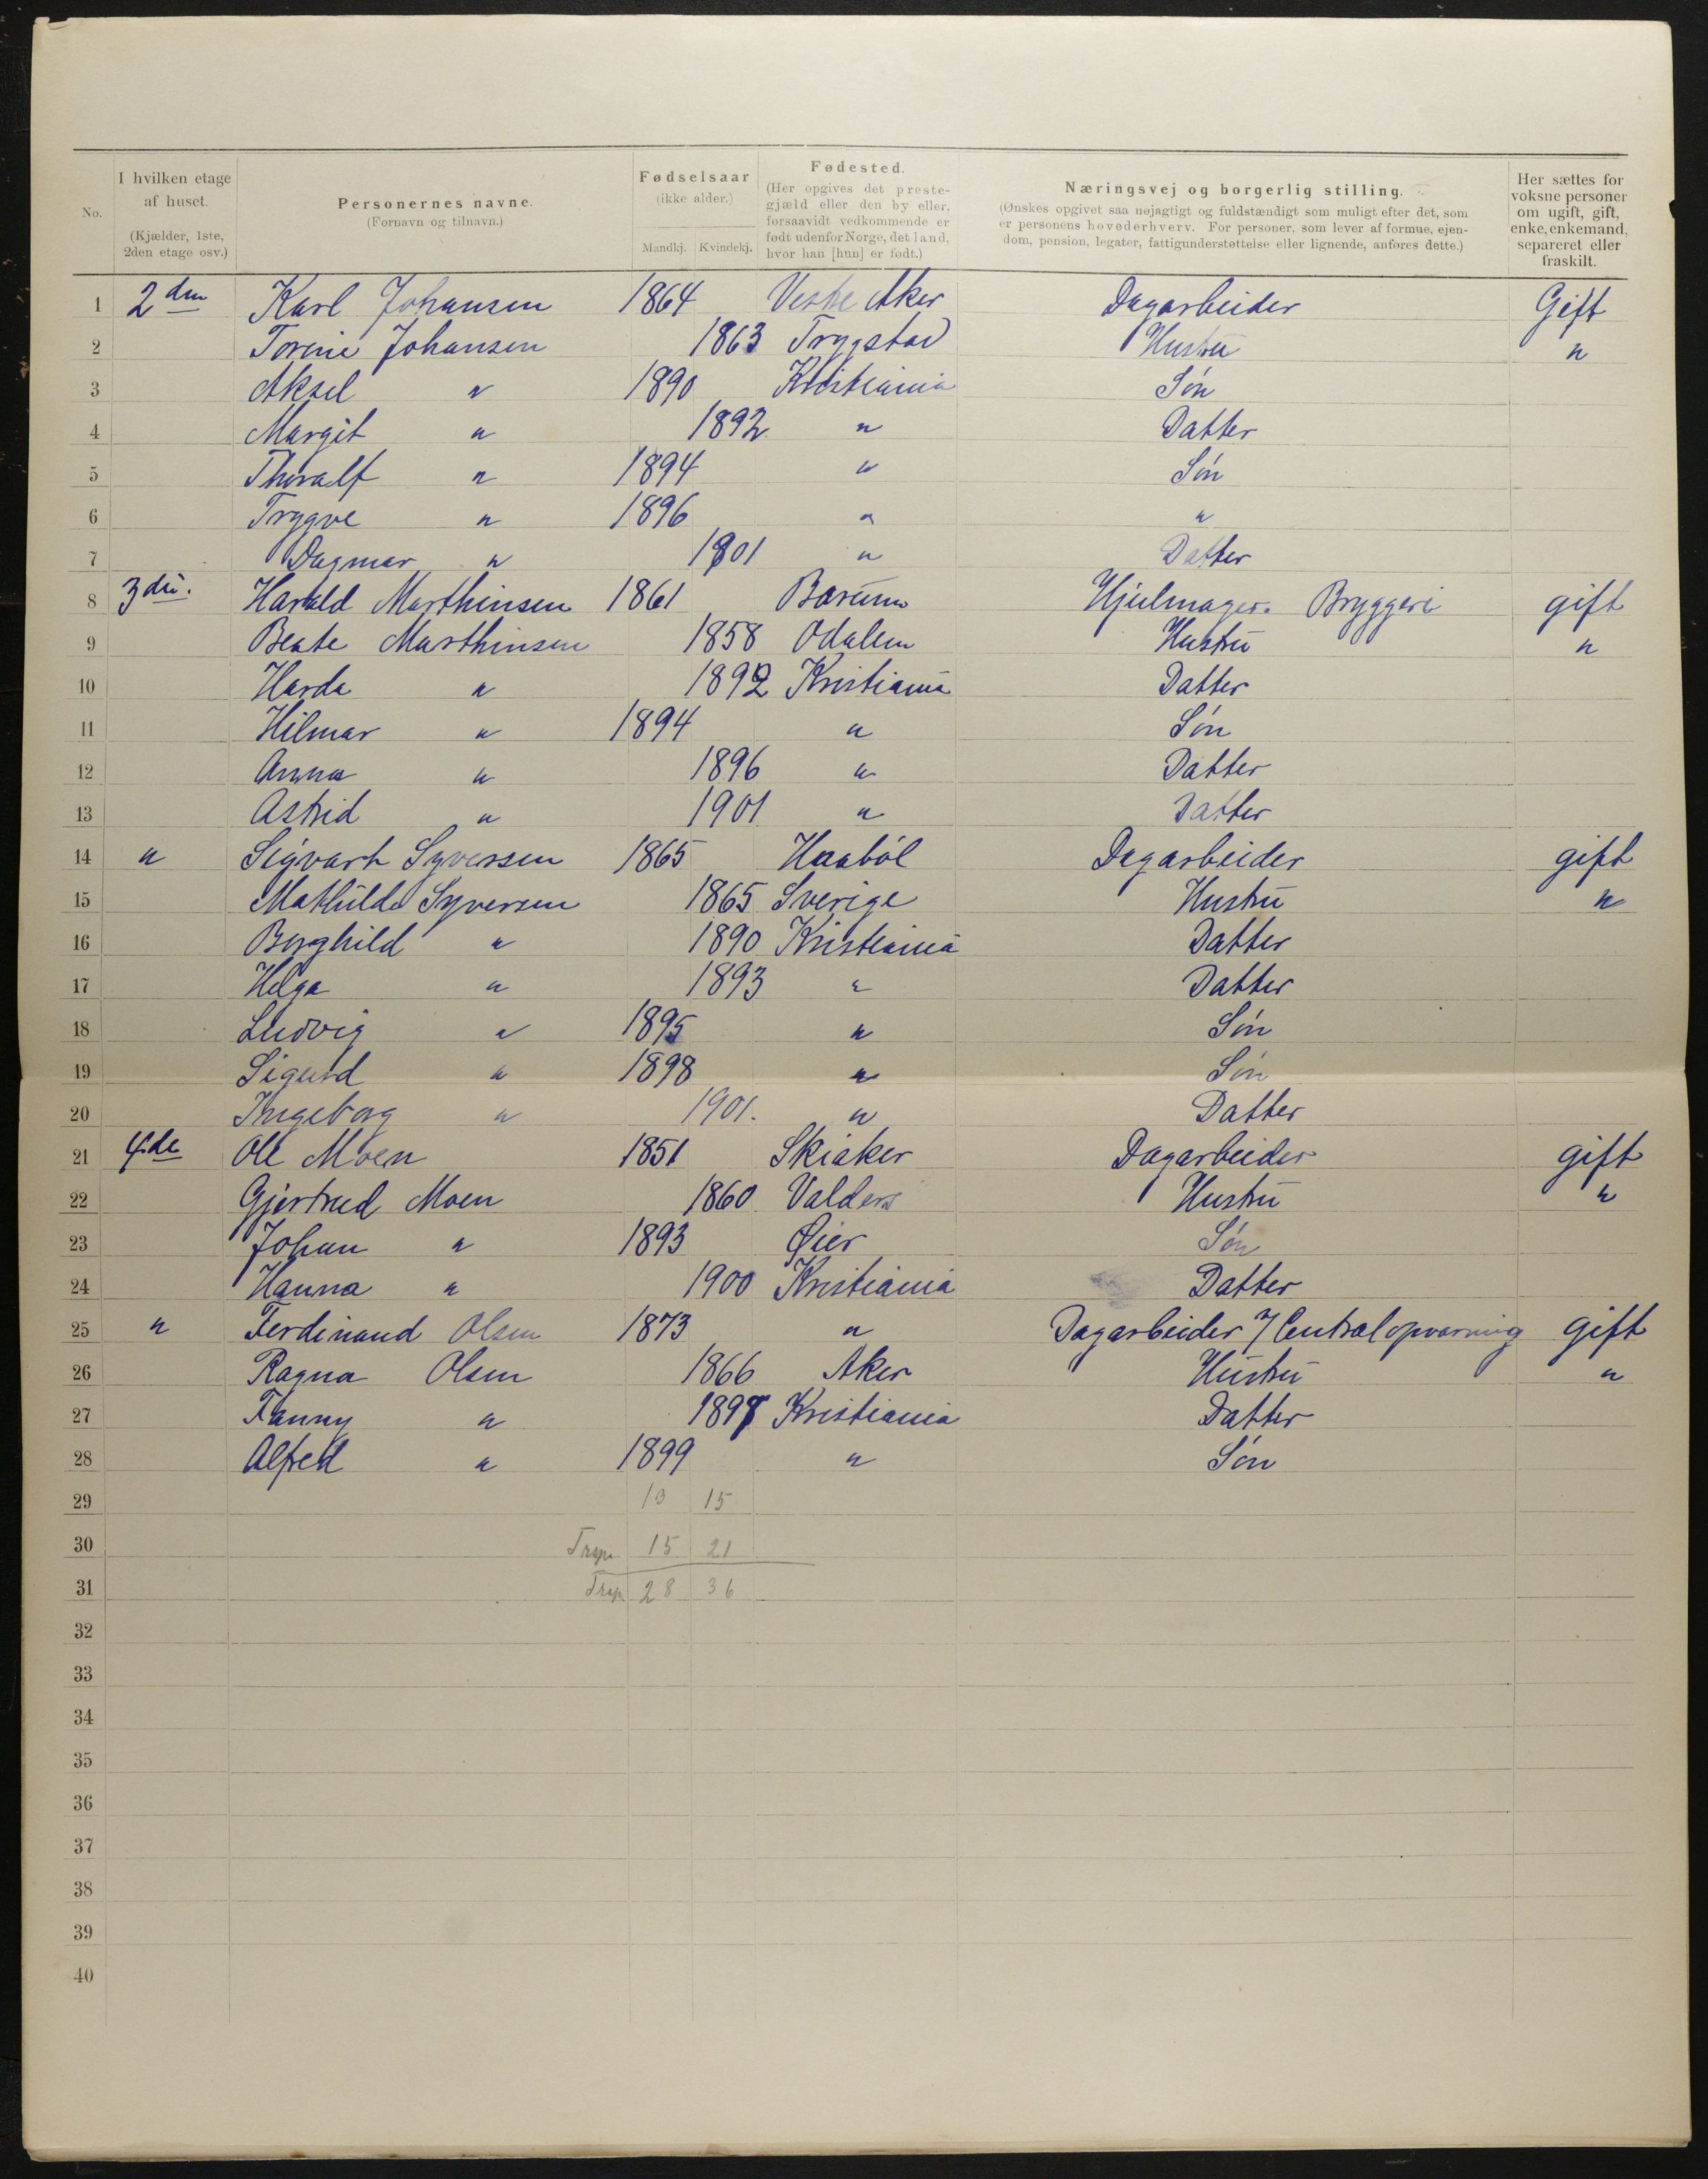 No.
I hvilken etage af huset. (Kjælder, 1ste, 2den etage osv.)
Personernes navne. (Fornavn og tilnavn.)
Fødselsaar (ikke alder.) Mandkj. Kvindekj.
Fødested. (Her opgives det prestegjæld eller den by eller, forsaavidt vedkommende er født udenfor Norge, det land, hvor han [hun] er født.)
Næringsvej og borgerlig stilling. (Ønskes opgivet saa nøjagtigt og fuldstændigt som muligt efter det, som er personens hovederhverv. For personer, som lever af formue, ejendom, pension, legater, fattigunderstøttelse eller lignende, anføres dette.)
Her sættes for voksne personer om ugift, gift, enke, enkemand, separeret eller fraskilt.
1 2den Karl Johansen 1864 Vestre Aker Dagarbeider Gift
2 Torine Johansen 1863 Trygstad Hustru "
3 Aksel " 1890 Kristiania Søn
4 Margit " 1892 " Datter
5 Thoralf " 1894 " Søn
6 Trygve " 1896 " "
7 Dagmar " 1901 " Datter
8 3die. Harald Marthinsen 1861 Bærum Hjulmager. Bryggeri gift
9 Beate Marthinsen 1858 Odalen Hustru "
10 Harda " 1892 Kristiania Datter
11 Hilmar " 1894 " Søn
12 Anna " 1896 " Datter
13 Astrid " 1901 " Datter
14 " Sigvart Syversen 1865 Haabøl Dagarbeider gift
15 Mathilde Syversen 1865 Sverige Hustru "
16 Borghild " 1890 Kristiania Datter
17 Helga " 1893 " Datter
18 Ludvig " 1895 " Søn
19 Sigurd " 1898 " Søn
20 Ingeborg " 1901. " Datter
21 4de Ole Moen 1851 Skiaker Dagarbeider gift
22 Gjertrud Moen 1860 Valders Hustru "
23 Johan " 1893 Øier Søn
24 Hanna " 1900 Kristiania Datter
25 " Ferdinand Olsen 1873 " Dagarbeider / Centralopvarming gift
26 Ragna Olsen 1866 Aker Hustru "
27 Fanny " 1897 Kristiania Datter
28 Alfred " 1899 " Søn
29 13 15
30 Trsp. 15 21
31 Trsp. 28 36
32
33
34
35
36
37
38
39
40